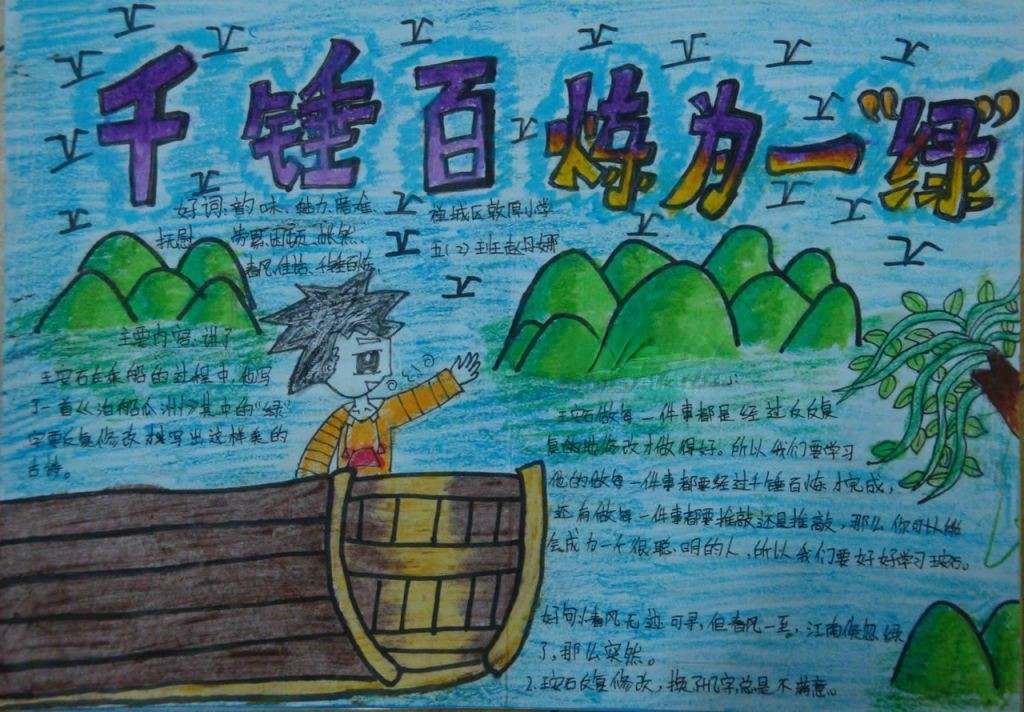 千锤百炼为一“绿”
好词:韵味、魅力、
禅城区敦厚小学
抚慰
五(2)班赵丹娜
千锤百炼
主要内容:讲了
王安石在乘船的过程中,他写
了一首《泊船瓜洲》其中的“绿”
字要反复修改才写出这样美的
古诗。
王安石做每一件事都是经过反反复
复的修改才做得好。所以我们要学习
他的做每一件事都要经过千锤百炼才完成,
还有做每一件事都要推敲还是推敲,那么你可以
会成为一个很聪明的人,所以我们要好好学习王安石。
好句:1春风无迹可寻,但春风一至,江南倏忽绿
了,那么突然。
2.王安石反复修改,换了几字,总是不满意。